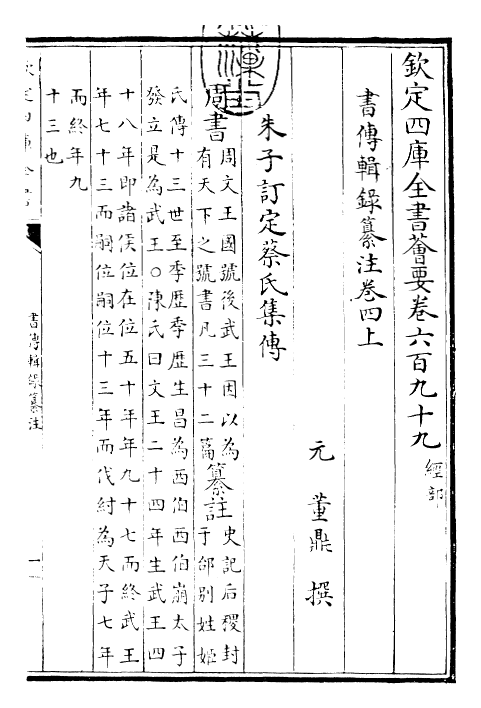 欽定四庫全書薈要卷六百九十九 經部
書傳輯録纂注卷四上
元 董鼎 撰
朱子訂定蔡氏集傳
周書
周文王國號後武王因以為
有天下之號書凡三十二篇
纂註
史記后稷封
于邰别姓姬
氏傳十三世至季歷季歷生昌為西伯西伯崩太子
發立是為武王○陳氏曰文王二十四年生武王四
十八年即諸侯位在位五十年年九十七而終武王
年七十三而嗣位嗣位十三年而代紂為天子七年
而終年九
十三也
書傳輯録纂注
一